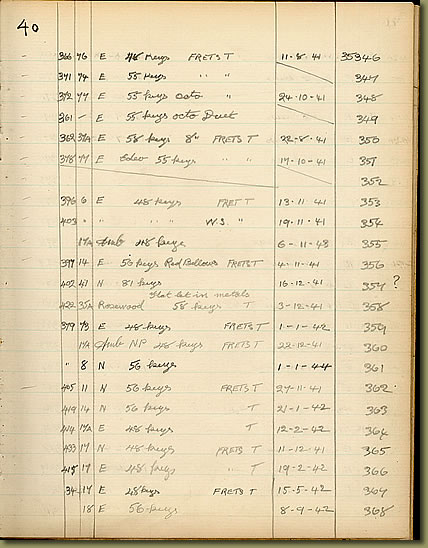 40
366 76 E 48 Keys FRETS T 11-8-41 35346
371 74 E 55 Keys " " 347
372 77 E 55 keys octo " 24-10-41 348
361 - E 55 keys octo Duet 349
362 37A E 58 keys 8" FRETS T 22-8-41 350
378 77 E 55 keys " " 17-10-41 351
352
396 6 E 48 keys FRET T 13-11-41 353
403 " " " " W.S. " 19-11-41 354
17A 48 keys 6-11-43 355
397 14 E 56 keys Red Bellows FRETS T 4-11-41 356
402 41 N 81 keys 16-12-41 357 ?
flat let in metals
422 35A Rosewood 58 keys T 3-12-41 358
379 73 E 48 keys FRETS T 1-1-42 359
17A NP 48 keys FRETS T 22-12-41 360
" 8 N 56 keys 1-1-44 361
405 11 N 56 keys FRETS T 27-11-41 362
419 14 N 56 keys T 21-1-42 363
414 17A E 48 keys T 12-2-42 364
433 17 N 48 keys FRETS T 11-12-41 365
415 17 E 48 keys " T 19-2-42 366
34 17 E 48 keys FRETS T 15-5-42 367
18 E 56 keys 8-9-42 368